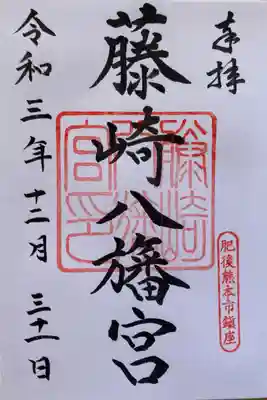 奉拝
藤崎八旛宮
令和三年十二月三十一日
肥後熊本市鎮座
藤崎
八旛
宮印